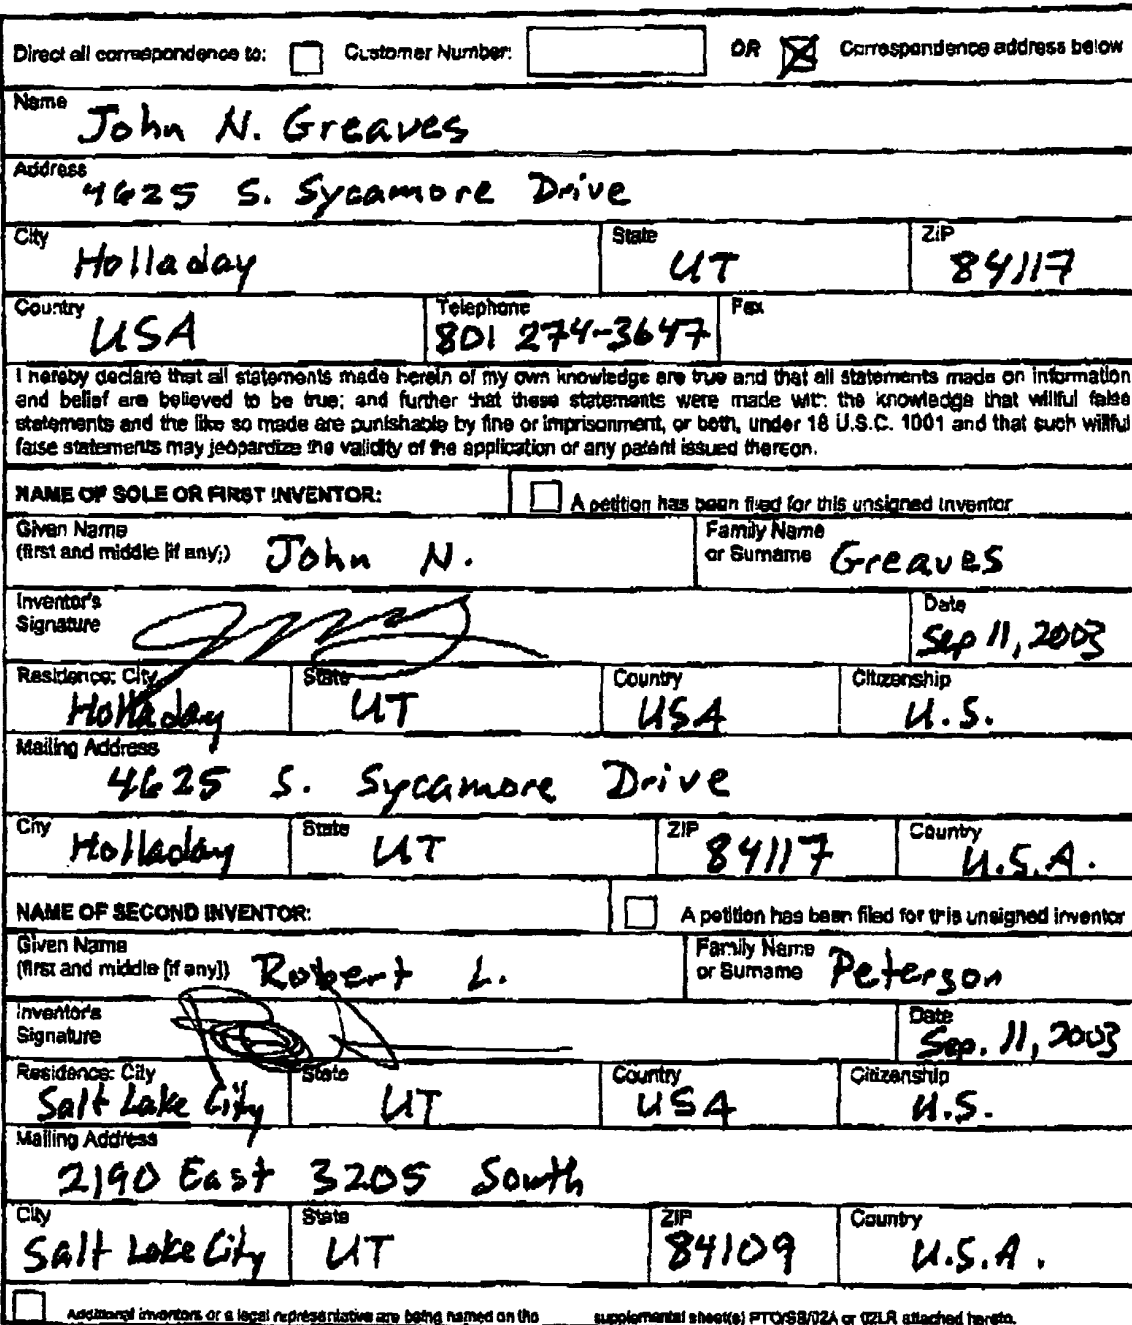 Direct all correspondence to: Customer Number: OR Correspondence address below
Name John N. Greaves
Address 4625 S. Sycamore Drive
City Holladay State UT ZIP 84117
Country USA Telephone 801 274-3647 Fax
I hereby declare that all statements made herein of my own knowledge are true and that all statements made on information
and belief are believed to be true; and further that these statements were made with the knowledge that willful false
statements and the like so made are punishable by fine or imprisonment, or both, under 18 U.S.C. 1001 and that such willful
false statements may jeopardize the validity of the application or any patent issued thereon.
NAME OF SOLE OR FIRST INVENTOR: A petition has been filed for this unsigned inventor
Given Name
(first and middle [if any]) John N. Family Name
or Surname Greaves
Inventor's
Signature Date Sep 11, 2003
Residence: City Holladay State UT Country USA Citizenship U.S.
Mailing Address
4625 S. Sycamore Drive
City Holladay State UT ZIP 84117 Country U.S.A.
NAME OF SECOND INVENTOR: A petition has been filed for this unsigned inventor
Given Name
(first and middle [if any]) Robert L. Family Name
or Surname Peterson
Inventor's
Signature Date Sep. 11, 2003
Residence: City Salt Lake City State UT Country USA Citizenship U.S.
Mailing Address
2190 East 3205 South
City Salt Lake City State UT ZIP 84109 Country U.S.A.
Additional inventors or a legal representative are being named on the supplemental sheet(s) PTO/SB/02A or 02LR attached hereto.